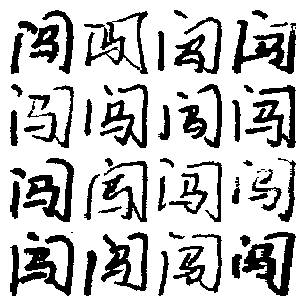 闯闯闯闯
闯闯闯闯
闯闯闯闯
闯闯闯闯